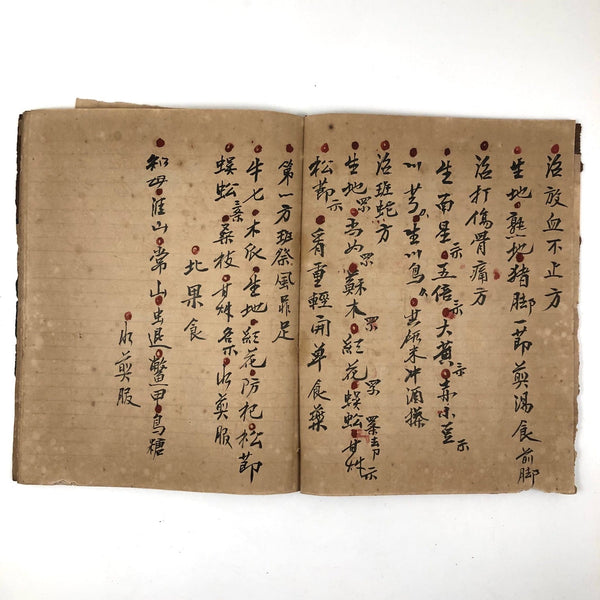 治放血不止方
生地熟地猪脚一節煎湯食前脚
治打傷骨痛方
生南星示五倍示大黄示赤小豆示
川芎生川烏共研末冲酒搽
治班蛇方
生地当归蘇木紅花蜈蚣甘艸示
松節示看重輕開单食藥
第一方班祭風井足
牛七木瓜生地紅花防杞松節
蜈蚣桑枝甘艸各示水煎服
北果食
知母淮山常山虫退鱉甲烏糖
水煎服